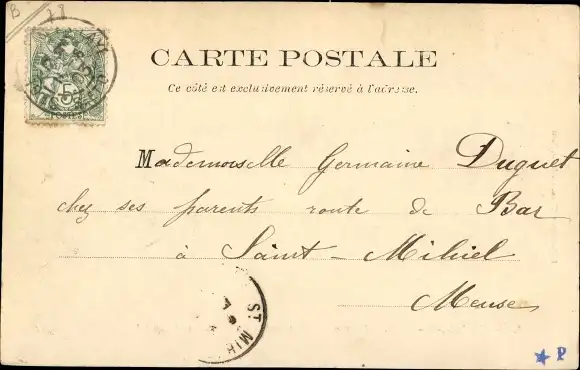 B 28
CARTE POSTALE
Ce côté est exclusivement réservé à l'adresse.
5
POSTES
Mademoiselle Germaine Duguet
chez ses parents route de Bar
à Saint-Mihiel
Meuse
ST MIH
P